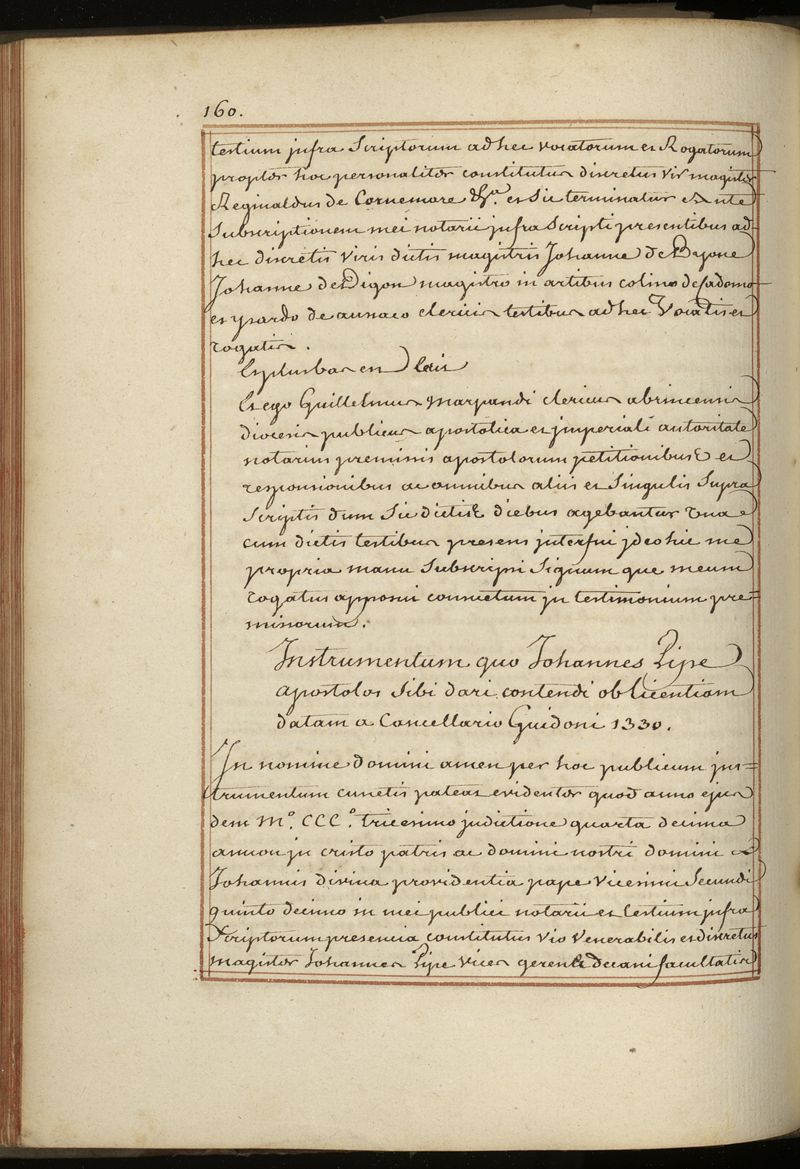 160.
testium infra Scriptorum ad hec vocatorum et Rogatorum
propter hoc personaliter constitutus discretus vir magister
Reginaldus de Cornemore &c.ª et sic terminatur Ante
Subscriptionem mei notarii infra Scripti presentibus ad
hec discretis viris dictis magistris Johanne de Byone
Johanne de Digon magistro in artibus colino de
et ypardo de aunaco clericis testibus ad hec Vocatis et
rogatis.
Et plus bas en
Et ego Guillelmus Marpandi clericus abrincensis
diocesis publicus apostolica et imperiali autoritate
notarius premissis apostolorum petitionibus et
responsionibus ac omnibus aliis et Singulis Supra
Scriptis dum Sic dictis diebus agebantur una
cum dictis testibus presens interfui ideo hic me
propria manu Subscripsi Signum que meum
rogatus apposui consuetum in testimonium pre=
missorum.
Instrumentum quo Johannes Pipe
apostolos Sibi dari contendi ob licentiam
datam a Cancellario Guidoni 1330.
In nomine domini amen per hoc publicum ins=
trumentum cunctis pateat evidenter quod anno ejus
dem M.º CCC.º tricesimo indictione quarta decima
annon in cristo patris ac domini nostri domini
Johannis divina providentia pape Vicesimi Secundi
quinto decimo in mei publici notarii et testium infra
Scriptorum presencia constitutus vir Venerabilis et discretus
magister Johannes Pipe Vices gerenti decani facultatis